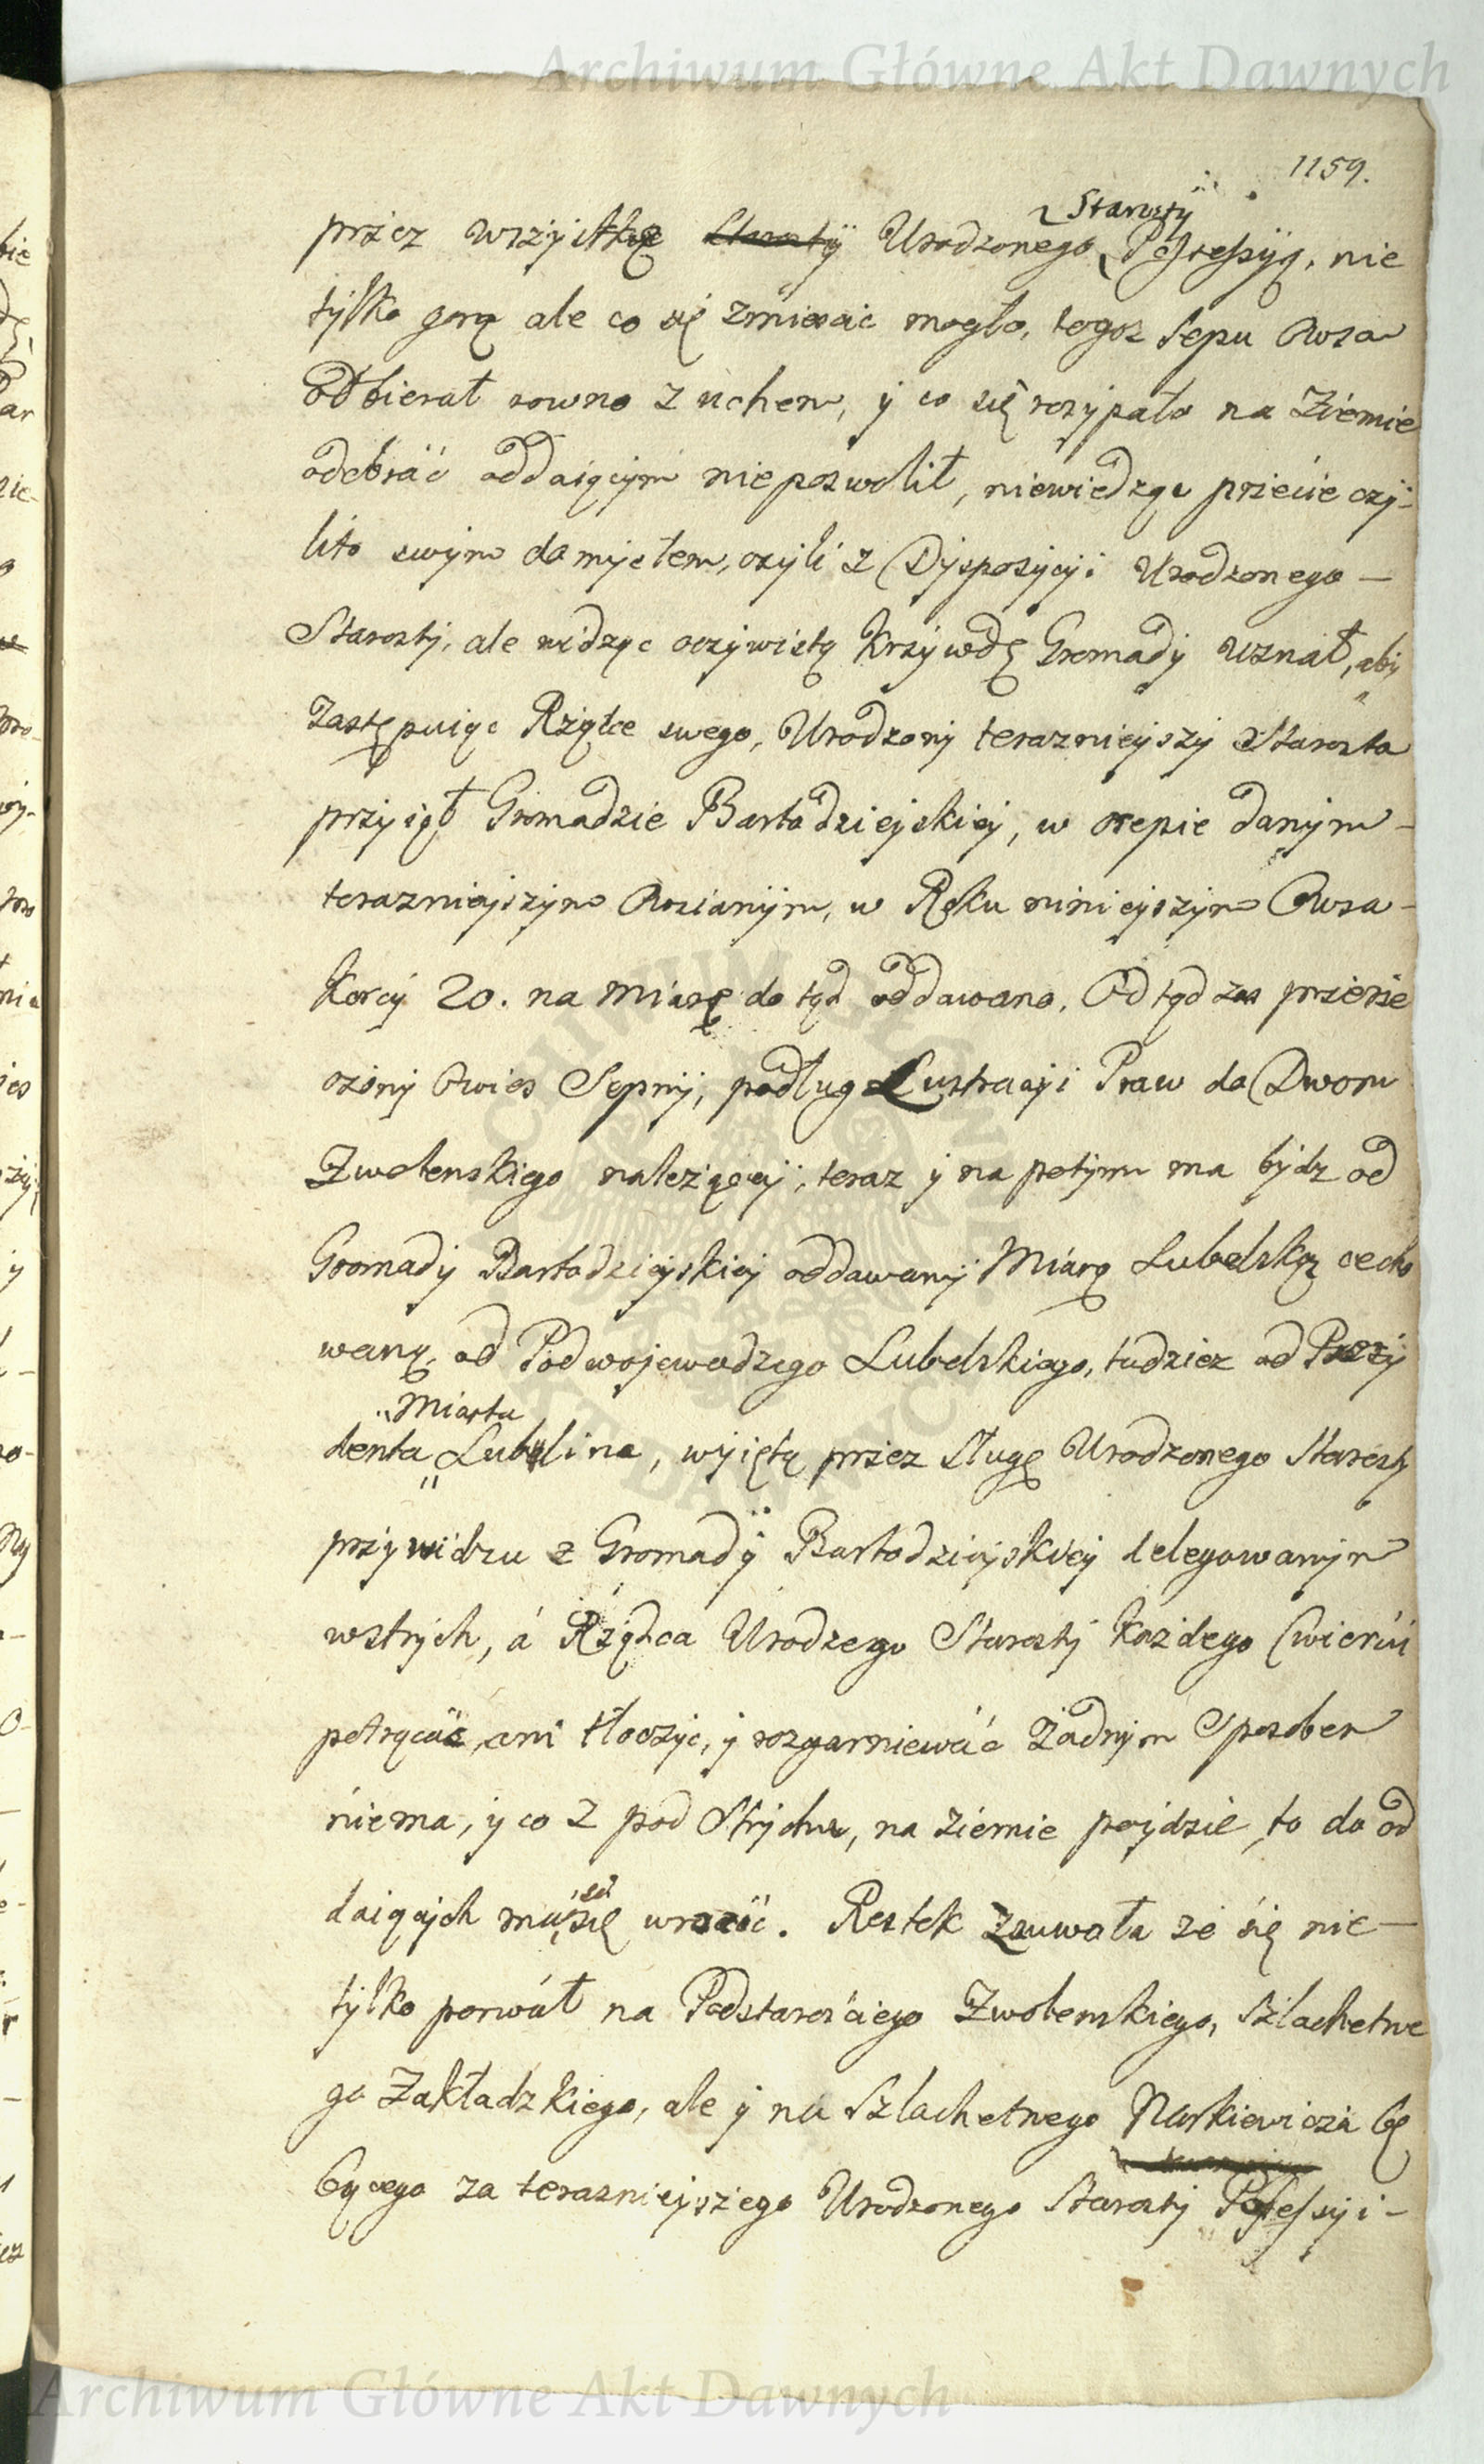 Archiwum Główne Akt Dawnych
1159.
Starosty
przez wszystkę Starosty Urodzonego Possessyą, nie
tylko gorą ale co się zmiescic mogło, tegoz sepu Owsa
odbierał rowno z uchem, y co się rozypało na Ziemie
odebrać oddaiącym niepozwolił, niewiedząc przecie czy-
lito swym domysłem, czyli z Dyspozycyi Urodzonego –
Starosty, ale widząc oczywistą Krzywdę Gromady uznał, aby
Zastępuiąc Rządce swego, Urodzony teraznieyszy Starosta
przyiął Gromadzie Bartodzieyskiey, w osepie danym –
terazniejszym Owsianym, w Roku ninieyszym Owsa –
Korcy 20. na miarę do tąd oddawano. Odtąd zas przerze
czony Owies Sepny, podług Lustracyi Praw do Dworu
Zwolenskiego nalezący, teraz y na potym ma bydz od
Gromady Bartodzieyskiey oddawany Miarą Lubelską cecho
waną, od Podwojewodzego Lubelskiego, tudziez od Prezy
Miasta
denta Lublina, wyiętą przez Sługę Urodzonego Starosty
przy widzu z Gromady Bartodzieyskiey delegowanym
wstrych, á Rządca Urodzego Starosty kazdego Cwierci
potrącać, ani tłoczyc, y rozgarniewać Zadnym Sposobem
niema, y co z pod Strychu, na ziemie poydzie, to do od
daiących musi się wracić. Restek Zsuwała ze się nie –
tylko porwał na Podstarosciego Zwolenskiego, Szlachetne
go Zakładzkiego, ale y na Szlachetnego Naskiewicza bę
bęcego za teraznieyszego Urodzonego Starosty Possessyi –
Archiwum Główne Akt Dawnych